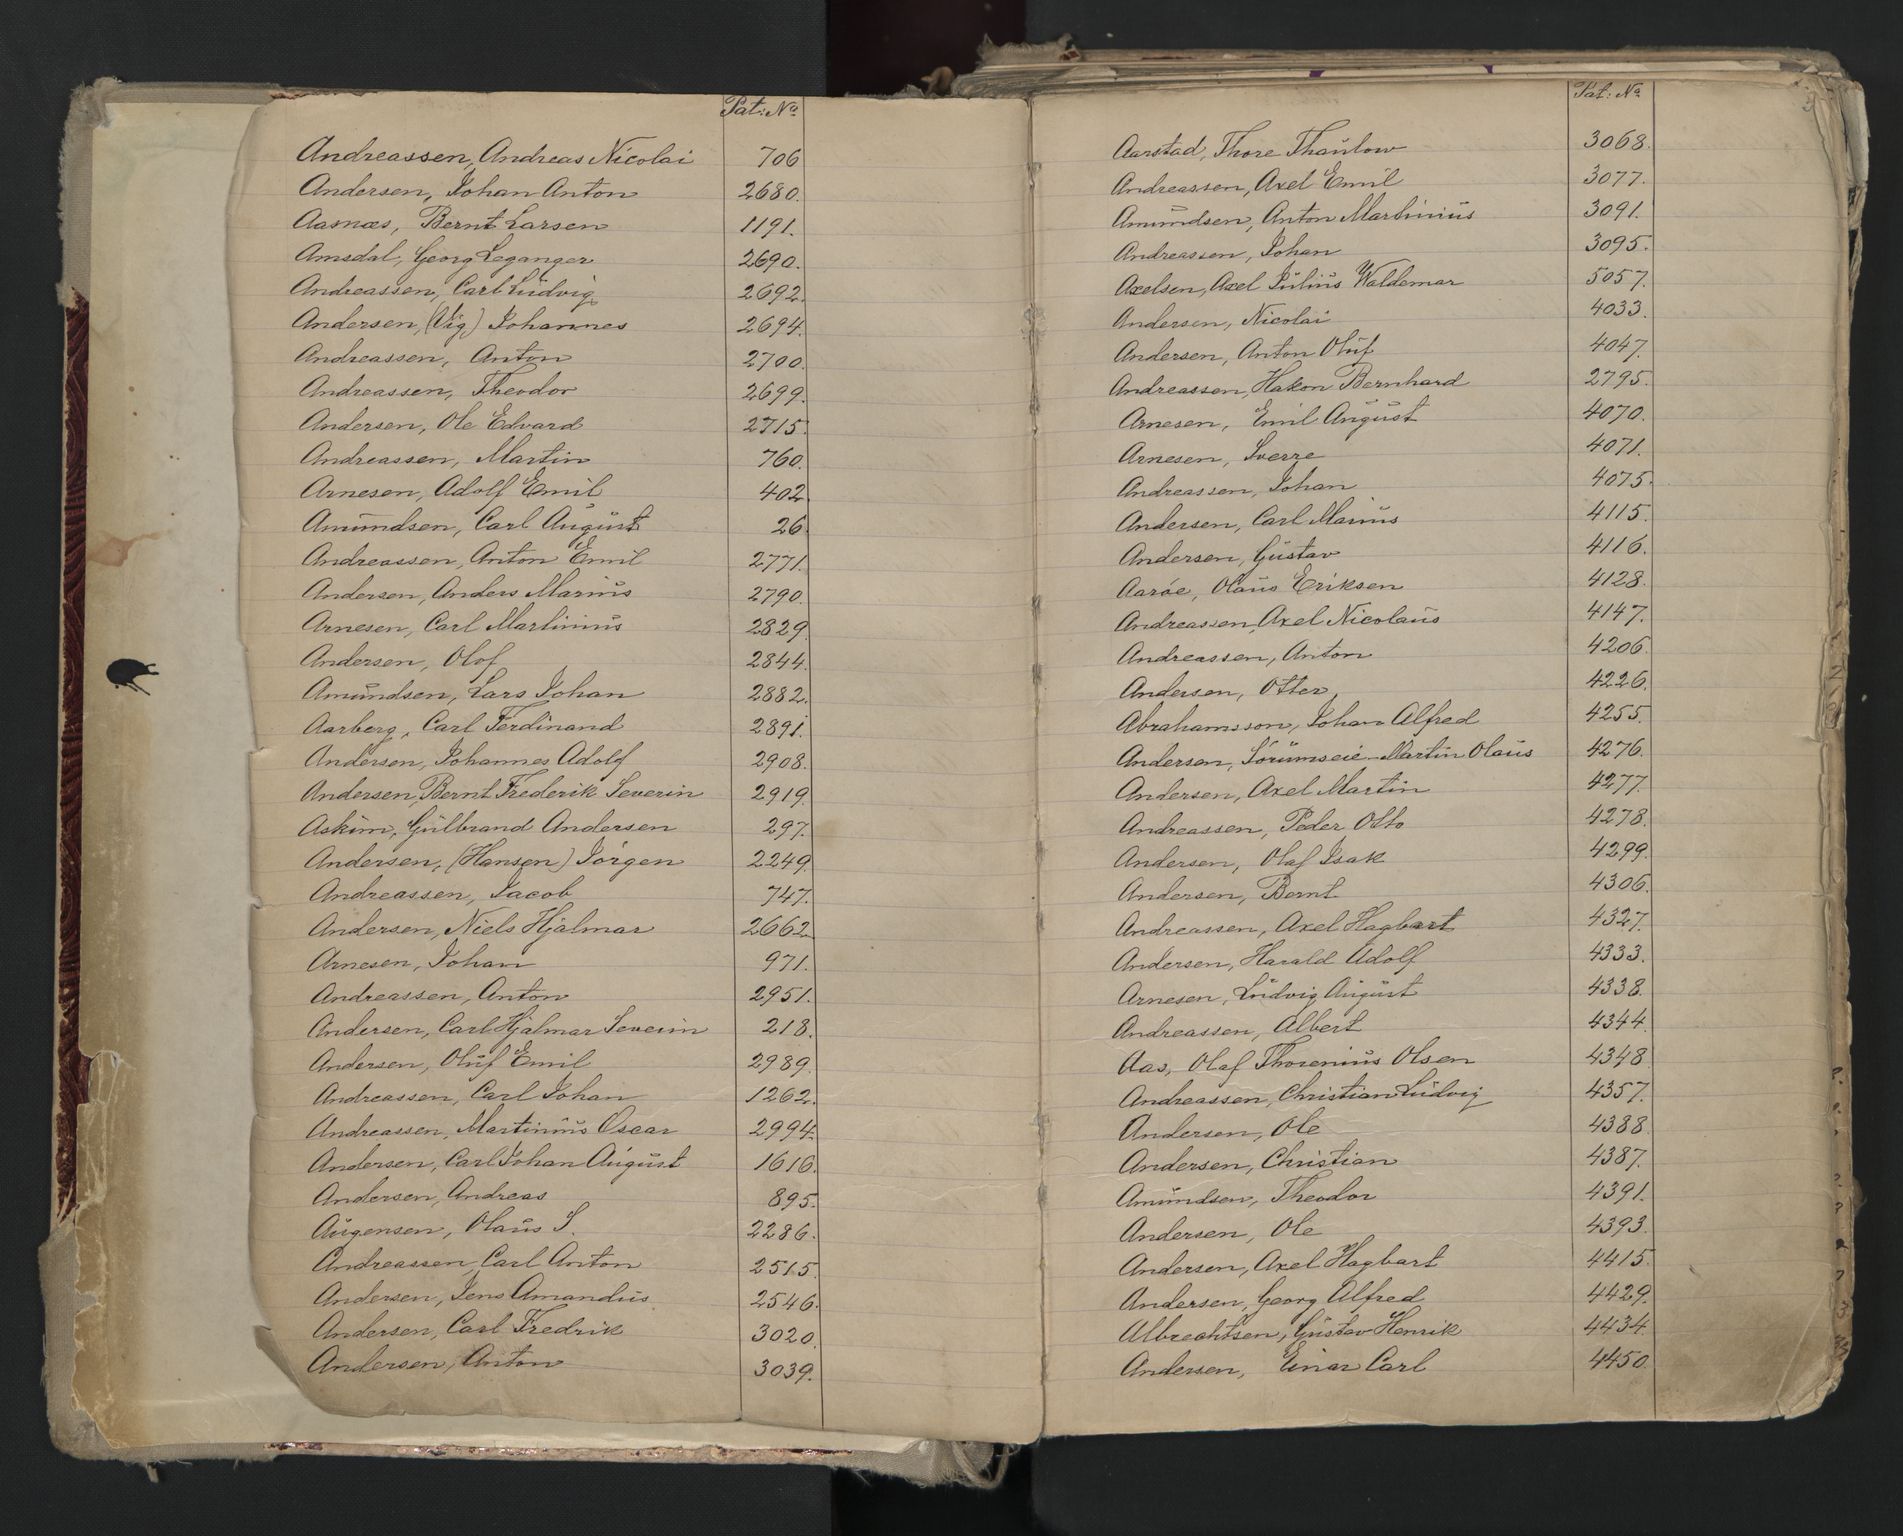 Pat: No
Andreassen, Andreas Nicolai 706
Andersen, Johan Anton 2680.
Aasnæs, Bernt Larsen 1191.
Amsdal, Georg Leganger 2690.
Andreassen, Carl Ludvig 2692.
Andersen, (Vig) Johannes 2694.
Andreassen, Anton 2700.
Andreassen, Theodor 2699.
Andersen, Ole Edvard 2715.
Andreassen, Martin 760.
Arnesen, Adolf Emil 402.
Amundsen, Carl August 26.
Andreassen, Anton Emil 2771.
Andersen, Anders Marius 2790.
Arnesen, Carl Martinius 2829.
Andersen, Olof 2844.
Amundsen, Lars Johan 2882.
Aarberg, Carl Ferdinand 2891.
Andersen, Johannes Adolf 2908.
Andersen, Bernt Frederik Severin 2919.
Askim, Gulbrand Andersen 297.
Andersen, (Hansen) Jørgen 2249.
Andreassen, Jacob 747.
Andersen, Niels Hjalmar 2662.
Arnesen, Johan 971.
Andreassen, Anton 2951.
Andersen, Carl Hjalmar Severin 218.
Andersen, Oluf Emil 2989.
Andreassen, Carl Johan 1262.
Andreassen, Martinius Oscar 2994.
Andersen, Carl Johan August 1616.
Andersen, Andreas 895.
Augensen, Olaus S. 2286.
Andreassen, Carl Anton 2515.
Andersen, Jens Amandus 2546.
Andersen, Carl Fredrik 3020.
Andersen, Anton 3039.
Pat: No
Aarstad, Thore Thaulow 3068.
Andreassen, Axel Emil 3077.
Amundsen, Anton Martinius 3091.
Andreassen, Johan 3095.
Axelsen, Axel Julius Waldemar 5057.
Andersen, Nicolai 4033.
Andersen, Anton Oluf 4047.
Andreassen, Hakon Bernhard 2795.
Arnesen, Emil August 4070.
Arnesen, Sverre 4071.
Andreassen, Johan 4075.
Andersen, Carl Marius 4115.
Andersen, Gustav 4116.
Aarøe, Olaus Eriksen 4128.
Andreassen, Axel Nicolaus 4147.
Andreassen, Anton 4206.
Andersen, Otter, 4226.
Abrahamsson, Johan Alfred 4255.
Andersen, Sørumseie Martin Olaus 4276.
Andersen, Axel Martin 4277.
Andreassen, Peder Otto 4278.
Andersen, Olaf Isak 4299.
Andersen, Bernt 4306.
Andreassen, Axel Hagbart 4327.
Andersen, Harald Adolf 4333.
Arnesen, Ludvig August 4338.
Andreassen, Albert 4344.
Aas, Olaf Thorenius Olsen 4348.
Andreassen, Christian Ludvig 4357.
Andersen, Ole 4388.
Andersen, Christian 4387.
Amundsen, Theodor 4391.
Andersen, Ole 4393.
Andersen, Axel Hagbart 4415.
Andersen, Georg Alfred 4429.
Albrechtsen, Gustav Henrik 4434.
Andersen, Einar Carl 4450.